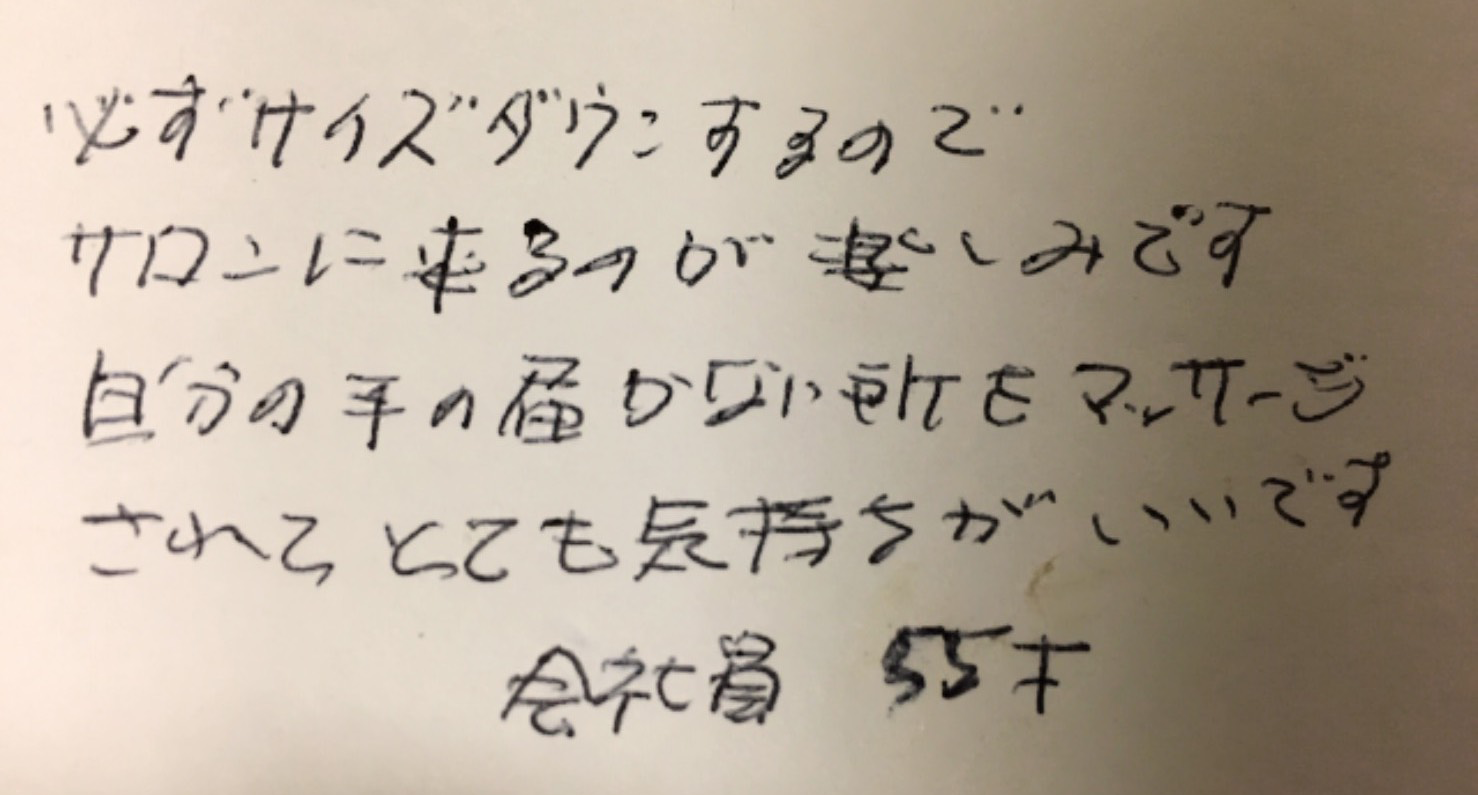 必ずサイズダウンするので
サロンに来るのが楽しみです
自分の手の届かない所をマッサージ
されてとても気持ちがいいです
会社員 55才